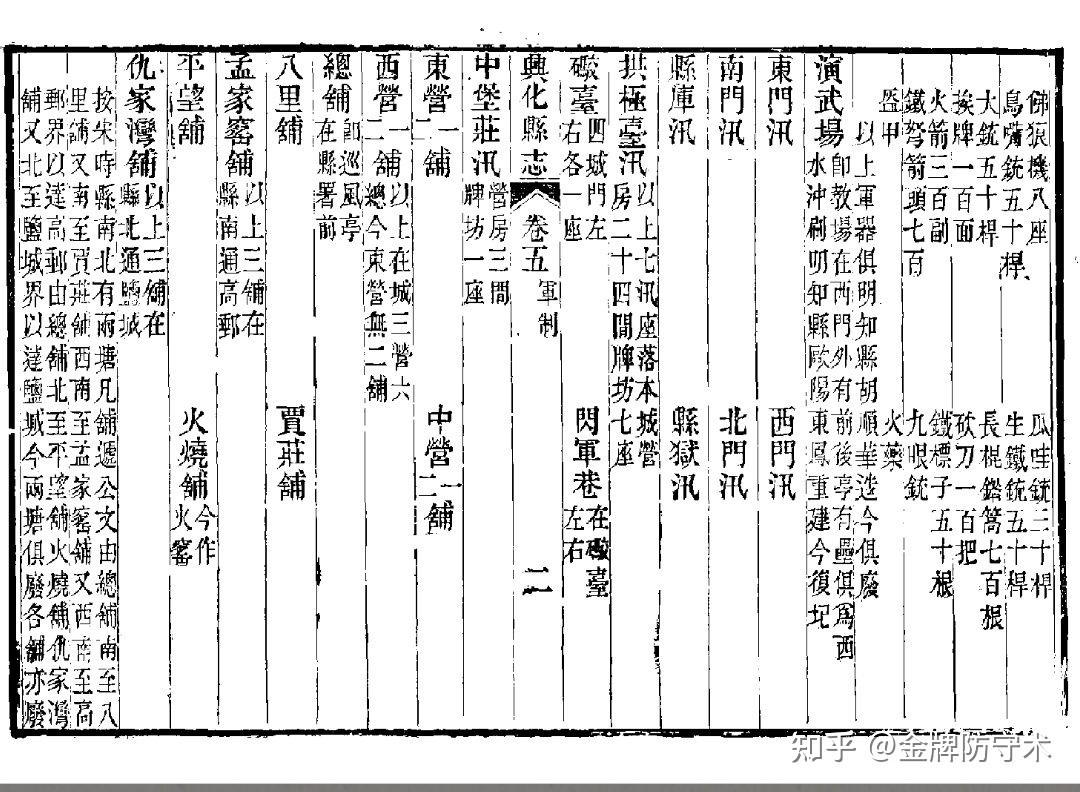 佛狼機八座
瓜哇銃三十桿
鳥嘴銃五十桿
生鐵銃五十桿
大銃五十桿
長棍鐺篙七百根
挨牌一百面
砍刀一百把
火箭三百副
鐵標子五十根
鐵弩箭頭七百
九眼銃
盔甲
火藥
以上軍器俱明知縣胡順華造今俱廢
演武場 卽教場在西門外有前後亭有壘俱爲西
水沖刷明知縣歐陽東鳳重建今復圮
東門汛
西門汛
南門汛
北門汛
縣庫汛
縣獄汛
拱極臺汛 以上七汛座落本城營
房二十四間牌坊七座
礮臺 四城門左
右各一座
閃軍巷 在礮臺
左右
興化縣志 卷五 軍制 二
中堡莊汛 營房三間
牌坊一座
東營 一
二舖
中營 一
二舖
西營 一舖
二舖 以上在城三營六
總今東營無二舖
總舖 卽巡風亭
在縣署前
八里舖
賈莊舖
孟家窰舖 以上三舖在
縣南通高郵
平望舖
火燒舖 今作
火窰
仇家灣舖 以上三舖在
縣北通鹽城
按宋時縣南北有兩塘凡舖遞公文由總舖南至八
里舖又南至賈莊舖西南至孟家窰舖又西南至高
郵界以達高郵由總舖北至平望舖火燒舖仇家灣
舖又北至鹽城界以達鹽城今兩塘俱廢各舖亦廢
知乎 @金牌防守术